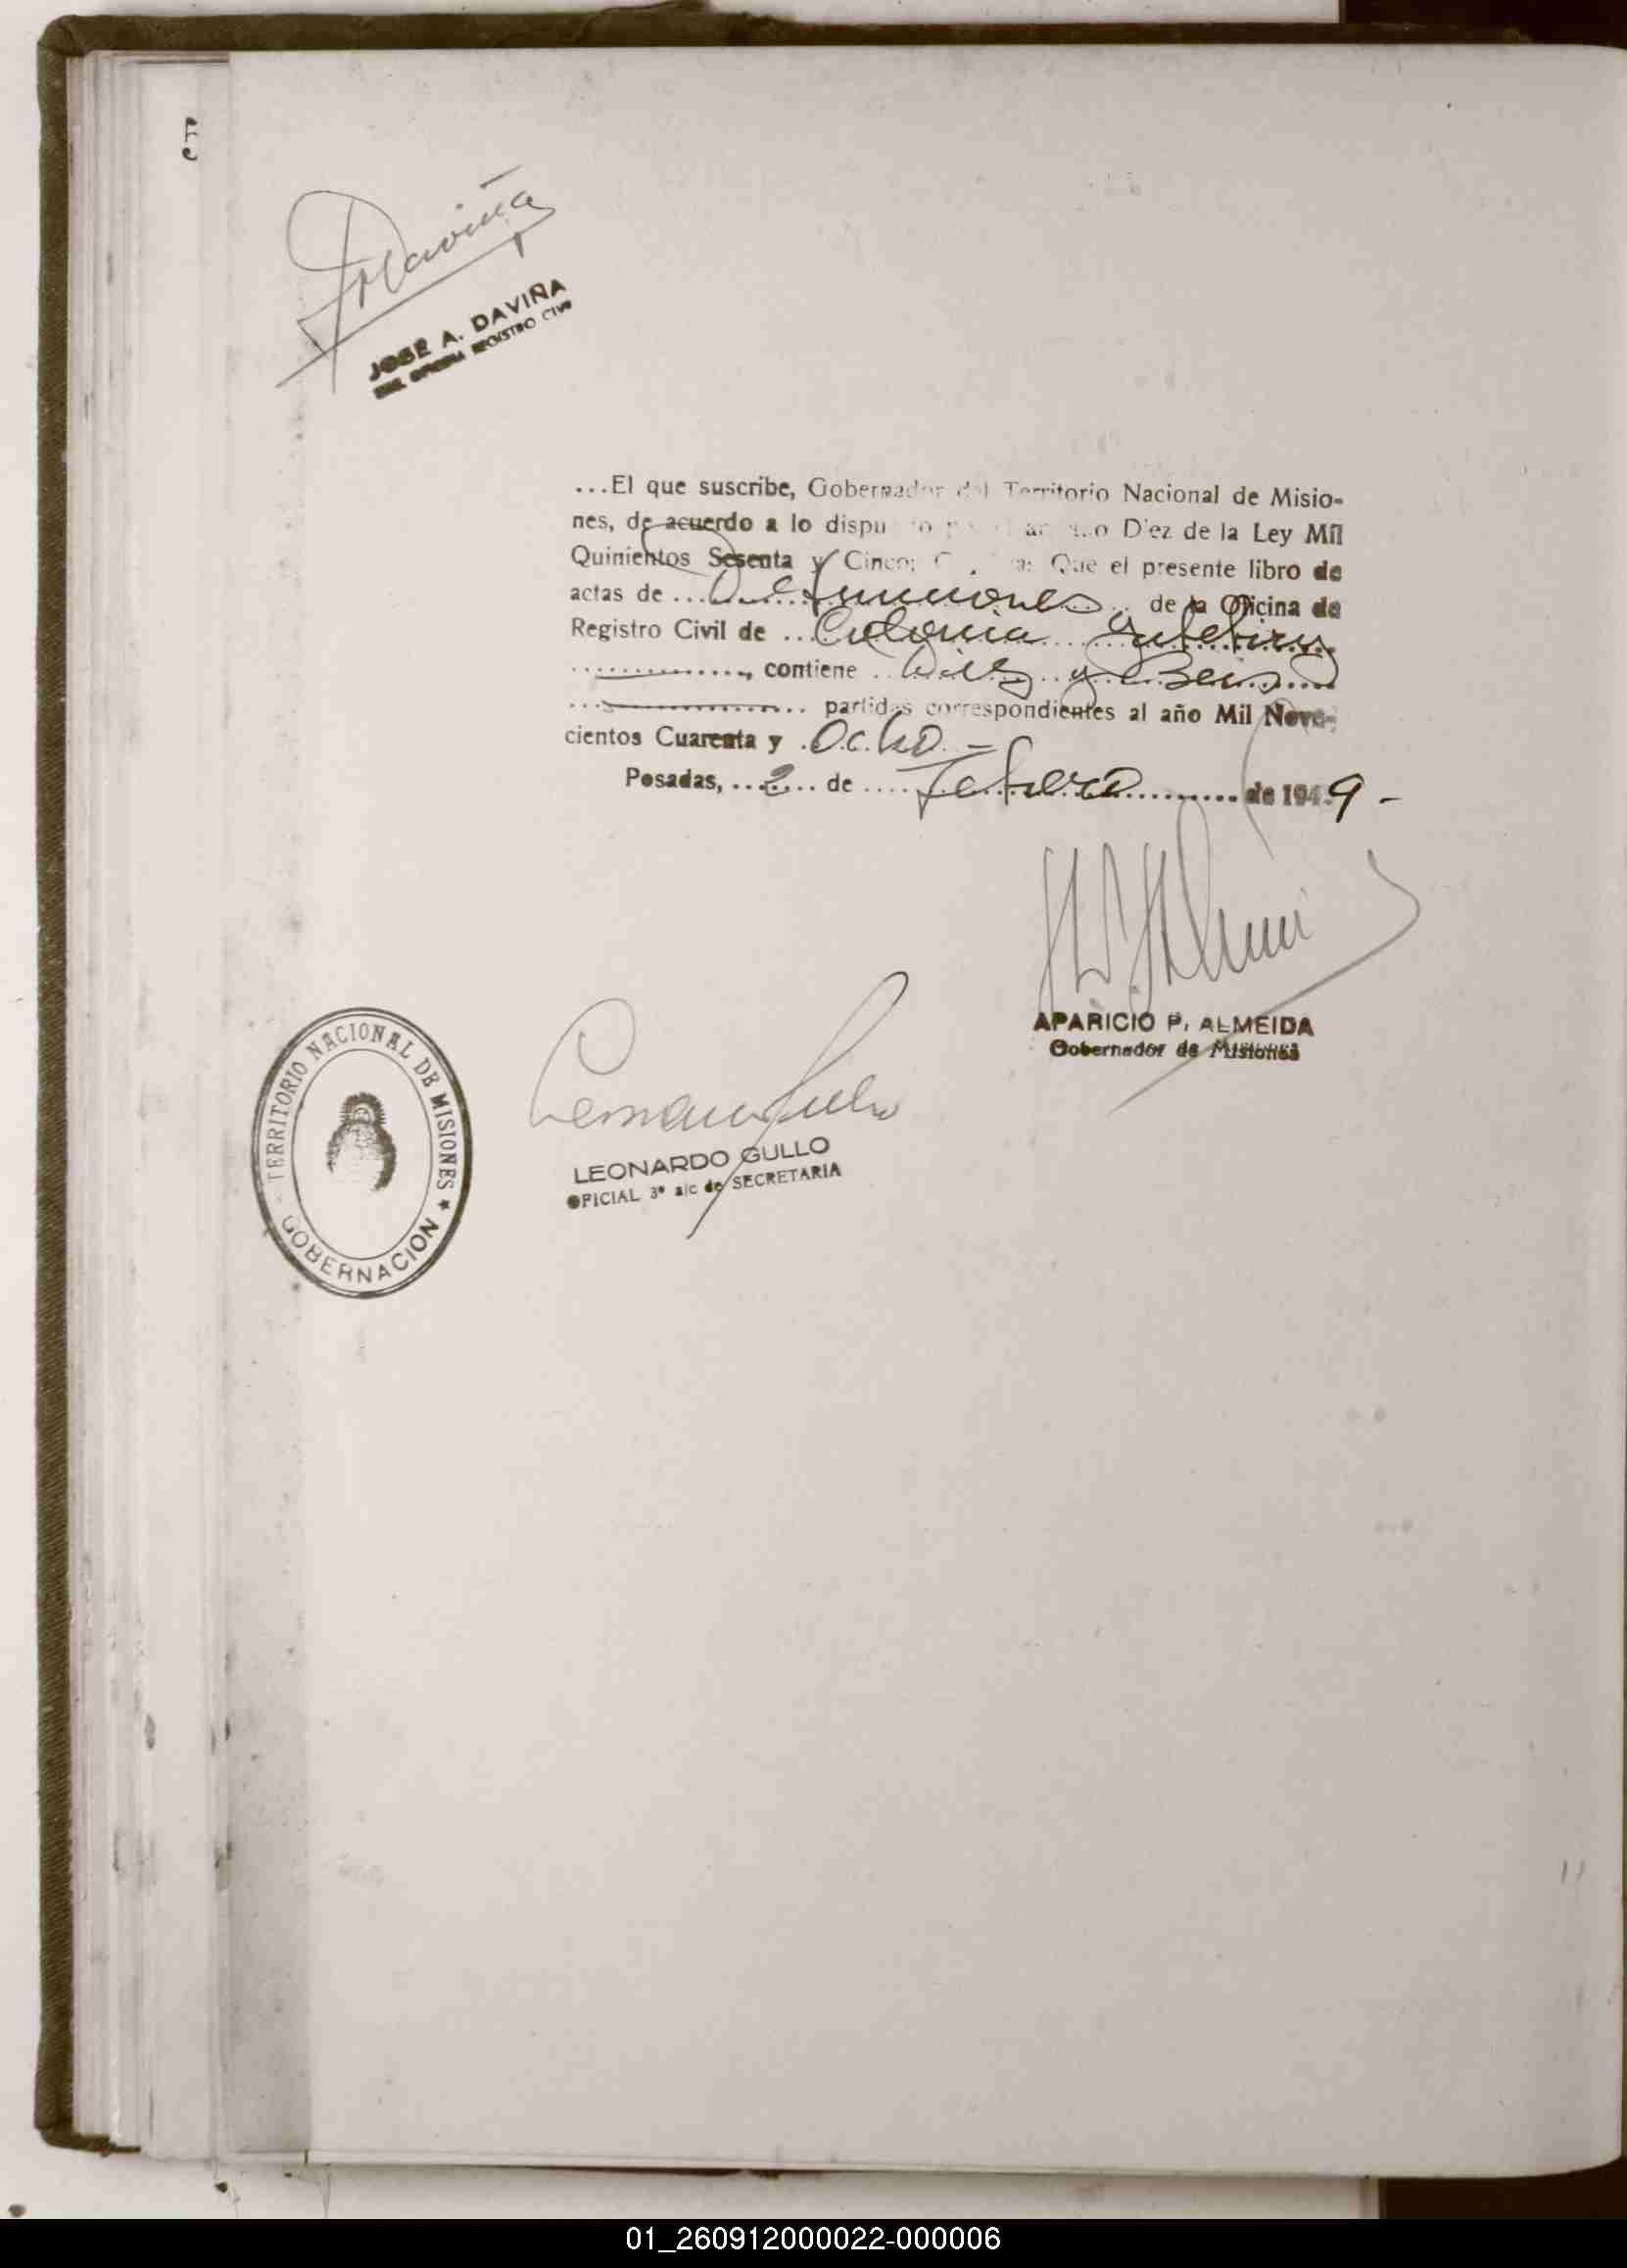 JOSE A. DAVIÑA
OFICINA REGISTRO CIVIL
...El que suscribe, Gobernador del Territorio Nacional de Misio-
nes, de acuerdo a lo dispu to Diez de la Ley Mil
Quinientos Sesenta y Cinco; Que el presente libro de
actas de ... Defunciones ... de la Oficina de
Registro Civil de ... Colonia
............., contiene .. Diez y Seis
............... partidas correspondientes al año Mil Nove-
cientos Cuarenta y . Ocho. =
Posadas, ... 2 ... de .... Febrero ........... de 1949 -
APARICIO P. ALMEIDA
Gobernador de Misiones
LEONARDO GULLO
OFICIAL 3º a/c de SECRETARIA
TERRITORIO NACIONAL DE MISIONES ★
GOBERNACION
01_260912000022-000006